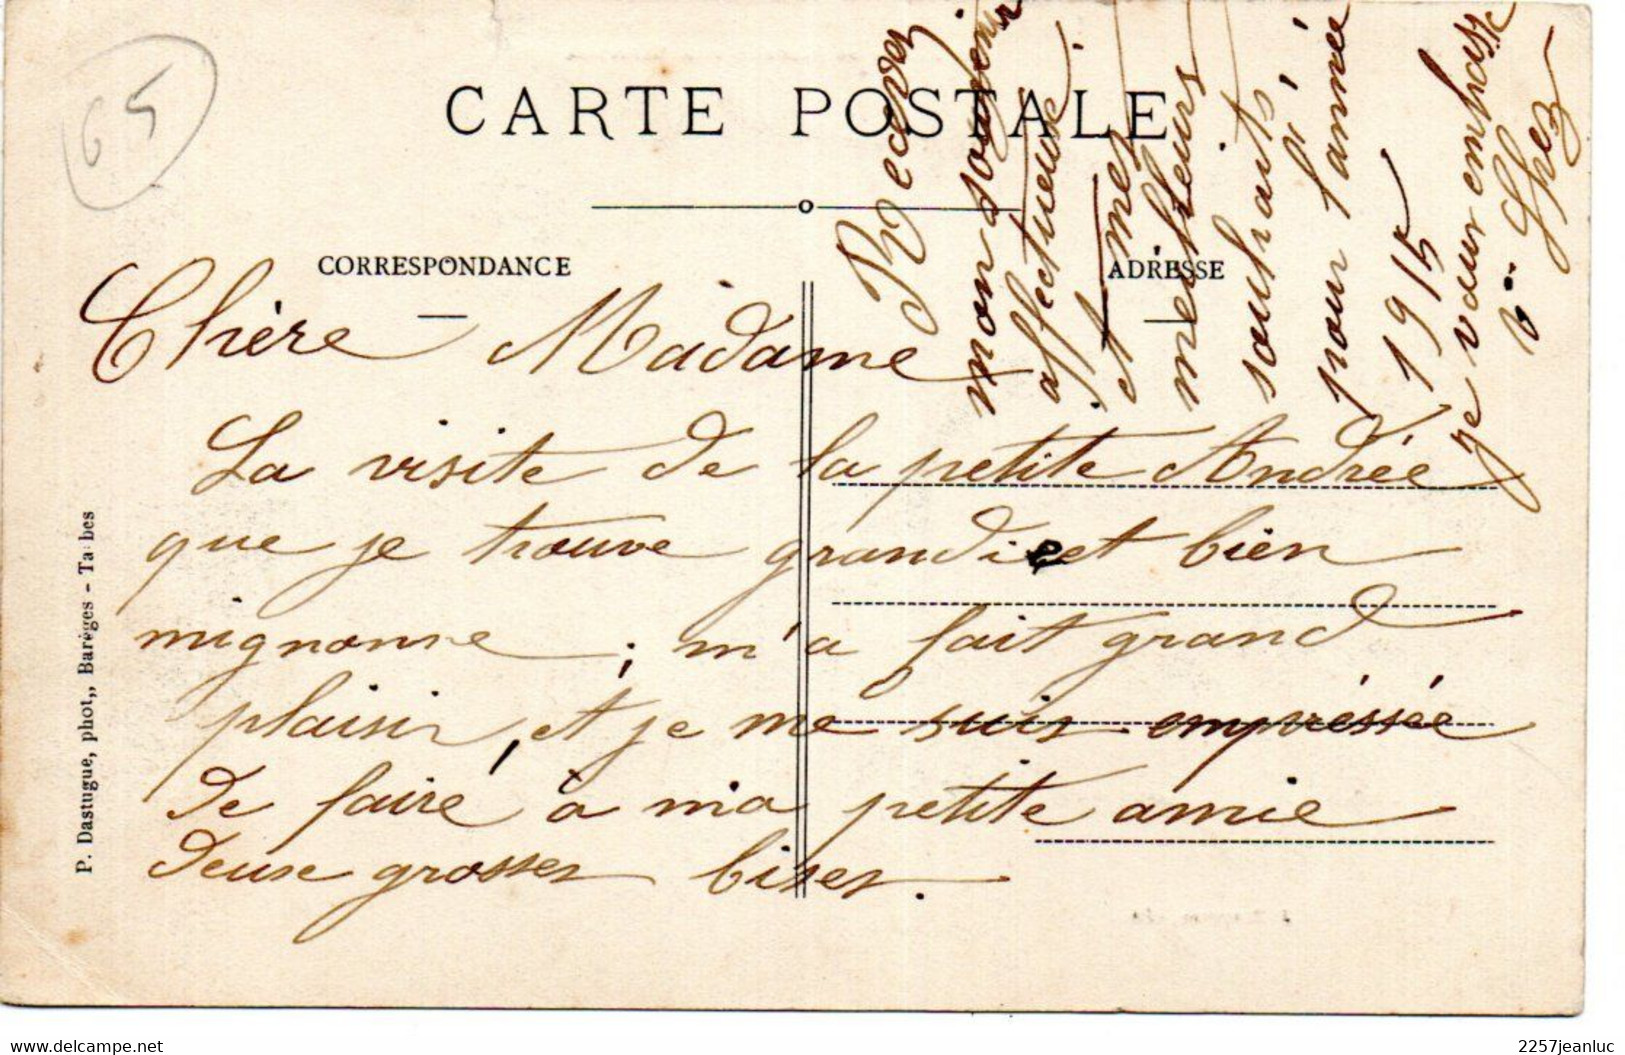 65
CARTE POSTALE
CORRESPONDANCE
ADRESSE
Chère Madame
La visite de la petite Andrée
que je trouve grandie et bien
mignonne ; m'a fait grand
plaisir, et je me suis empréssée
de faire à ma petite amie
deux grosses bises.
Recevez
mon souvenir
affectueux
et mes
meilleurs
souhaits
pour l'année
1915
je vous embrasse
P. Dastugue, phot,, Barèges - Tarbes
delcampe.net
2257jeanluc